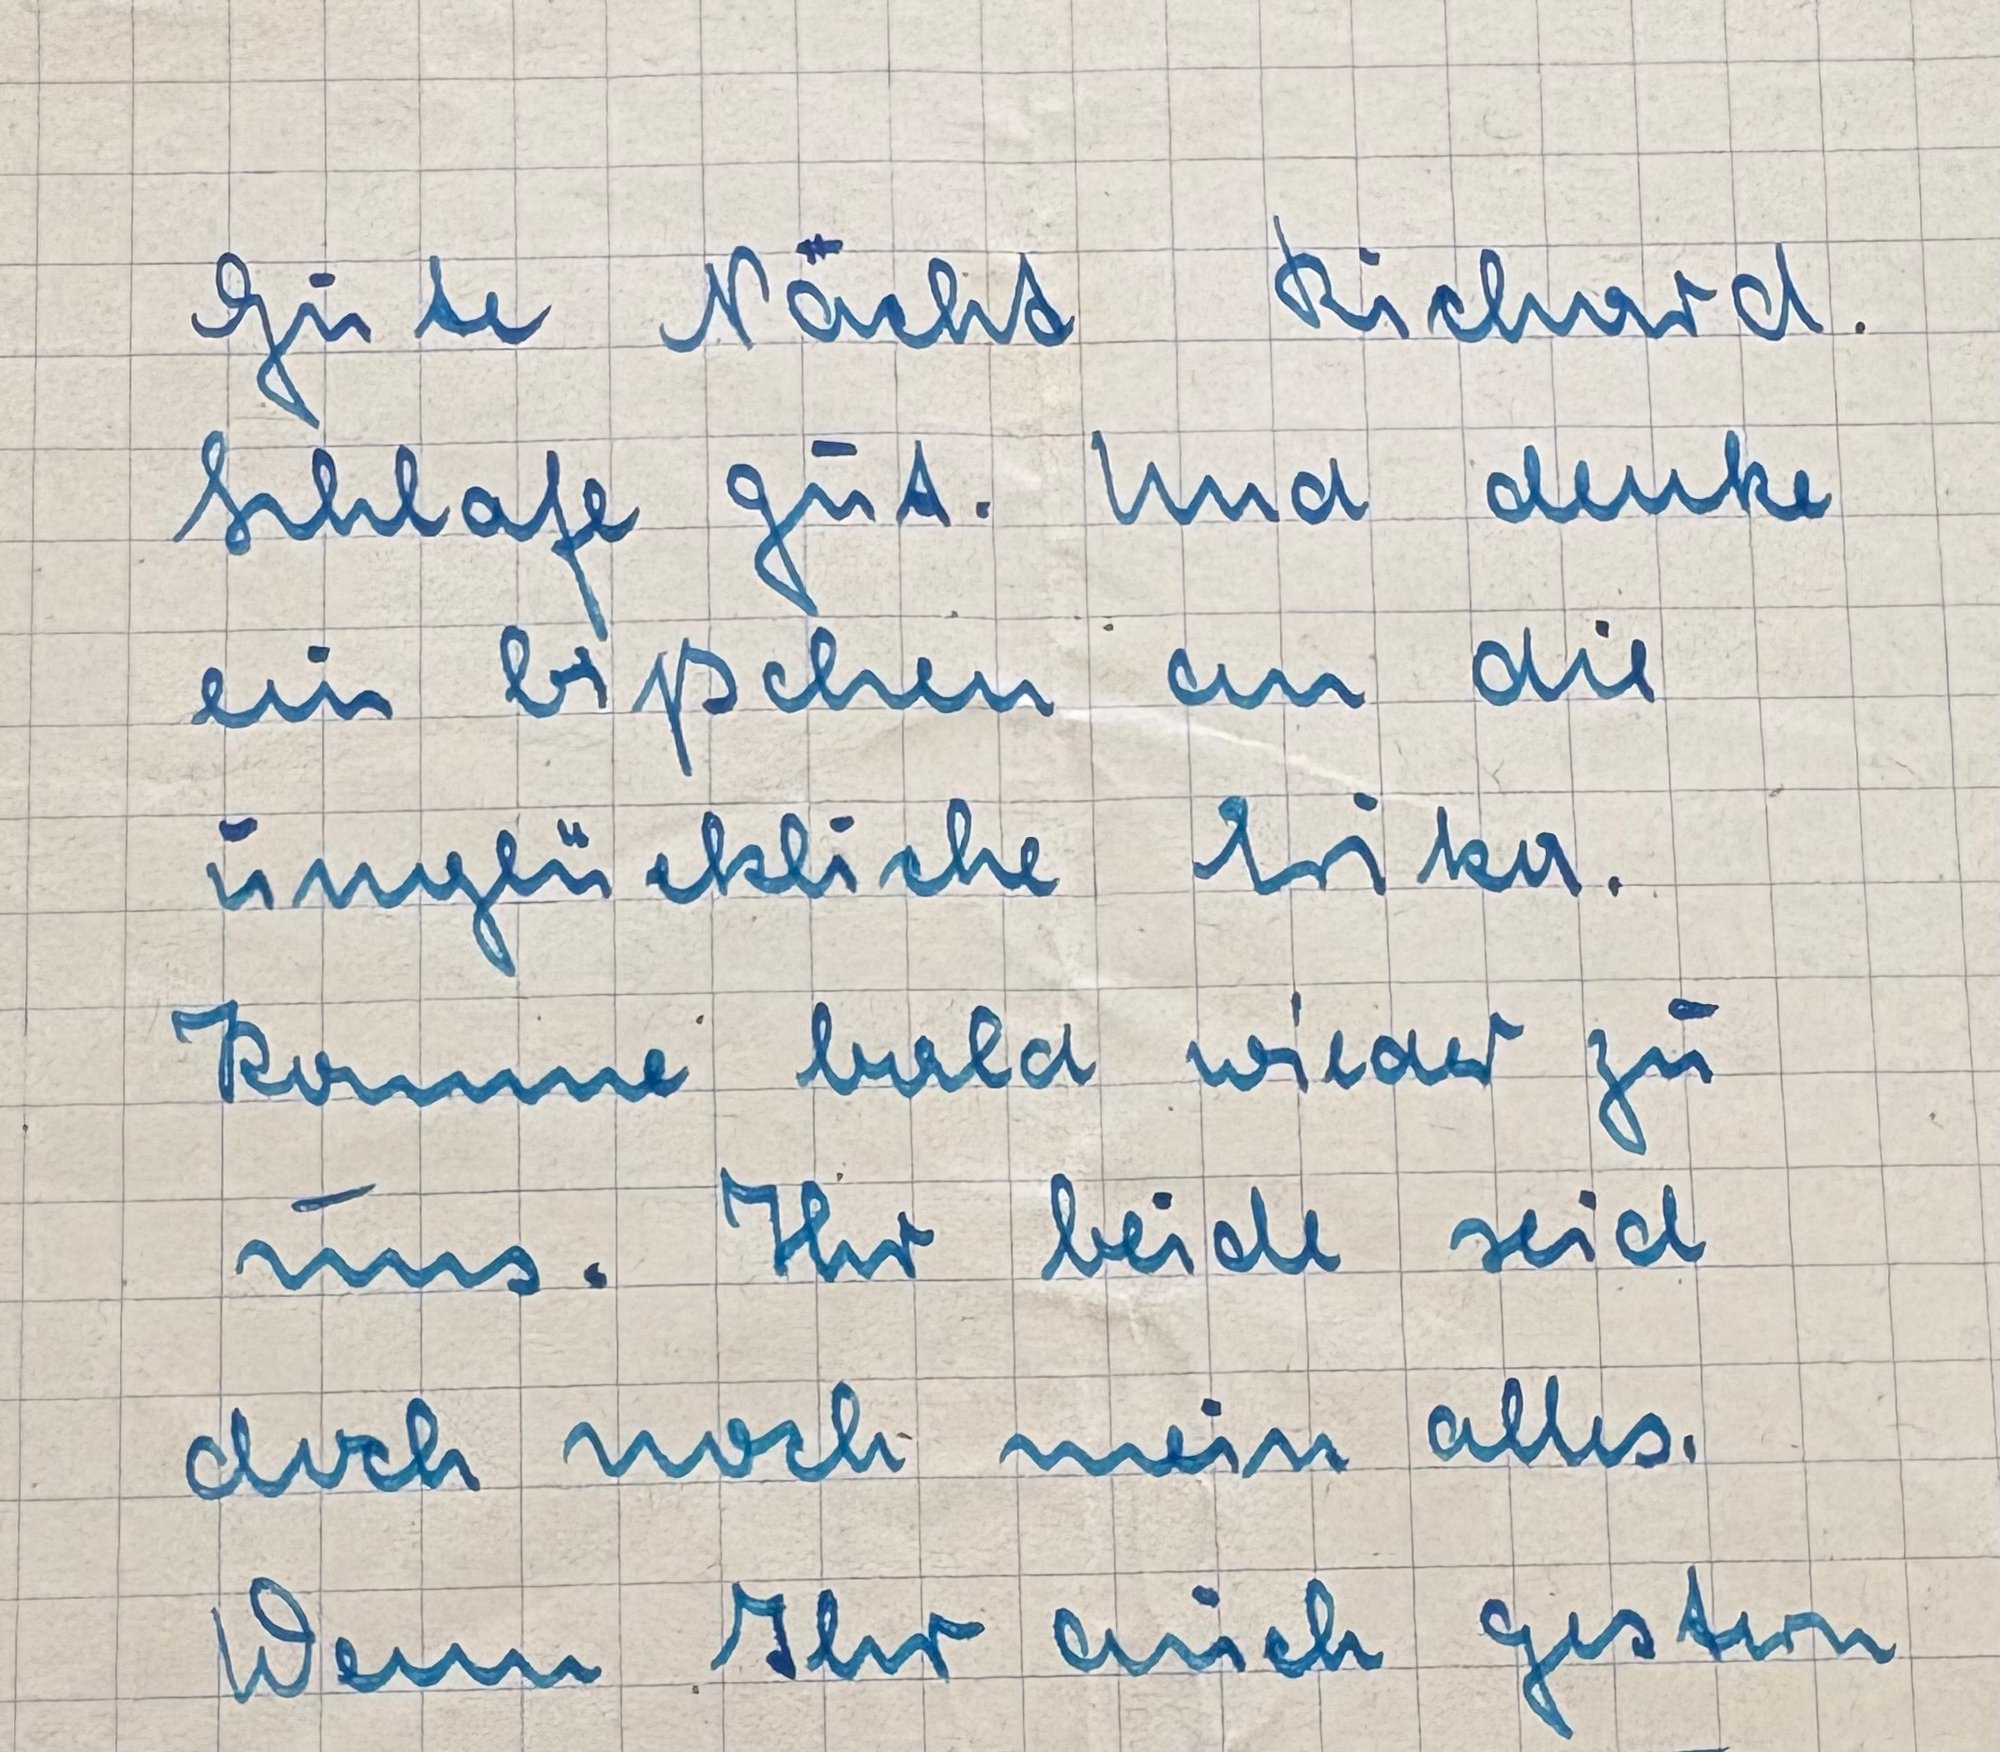 Gute Nächt Richard.
Schlafe gut. Und denke
ein bißchen an die
unglückliche Erika.
Komme bald wieder zu
uns. Ihr beide seid
doch noch mein alles.
Wenn Ihr auch gestern